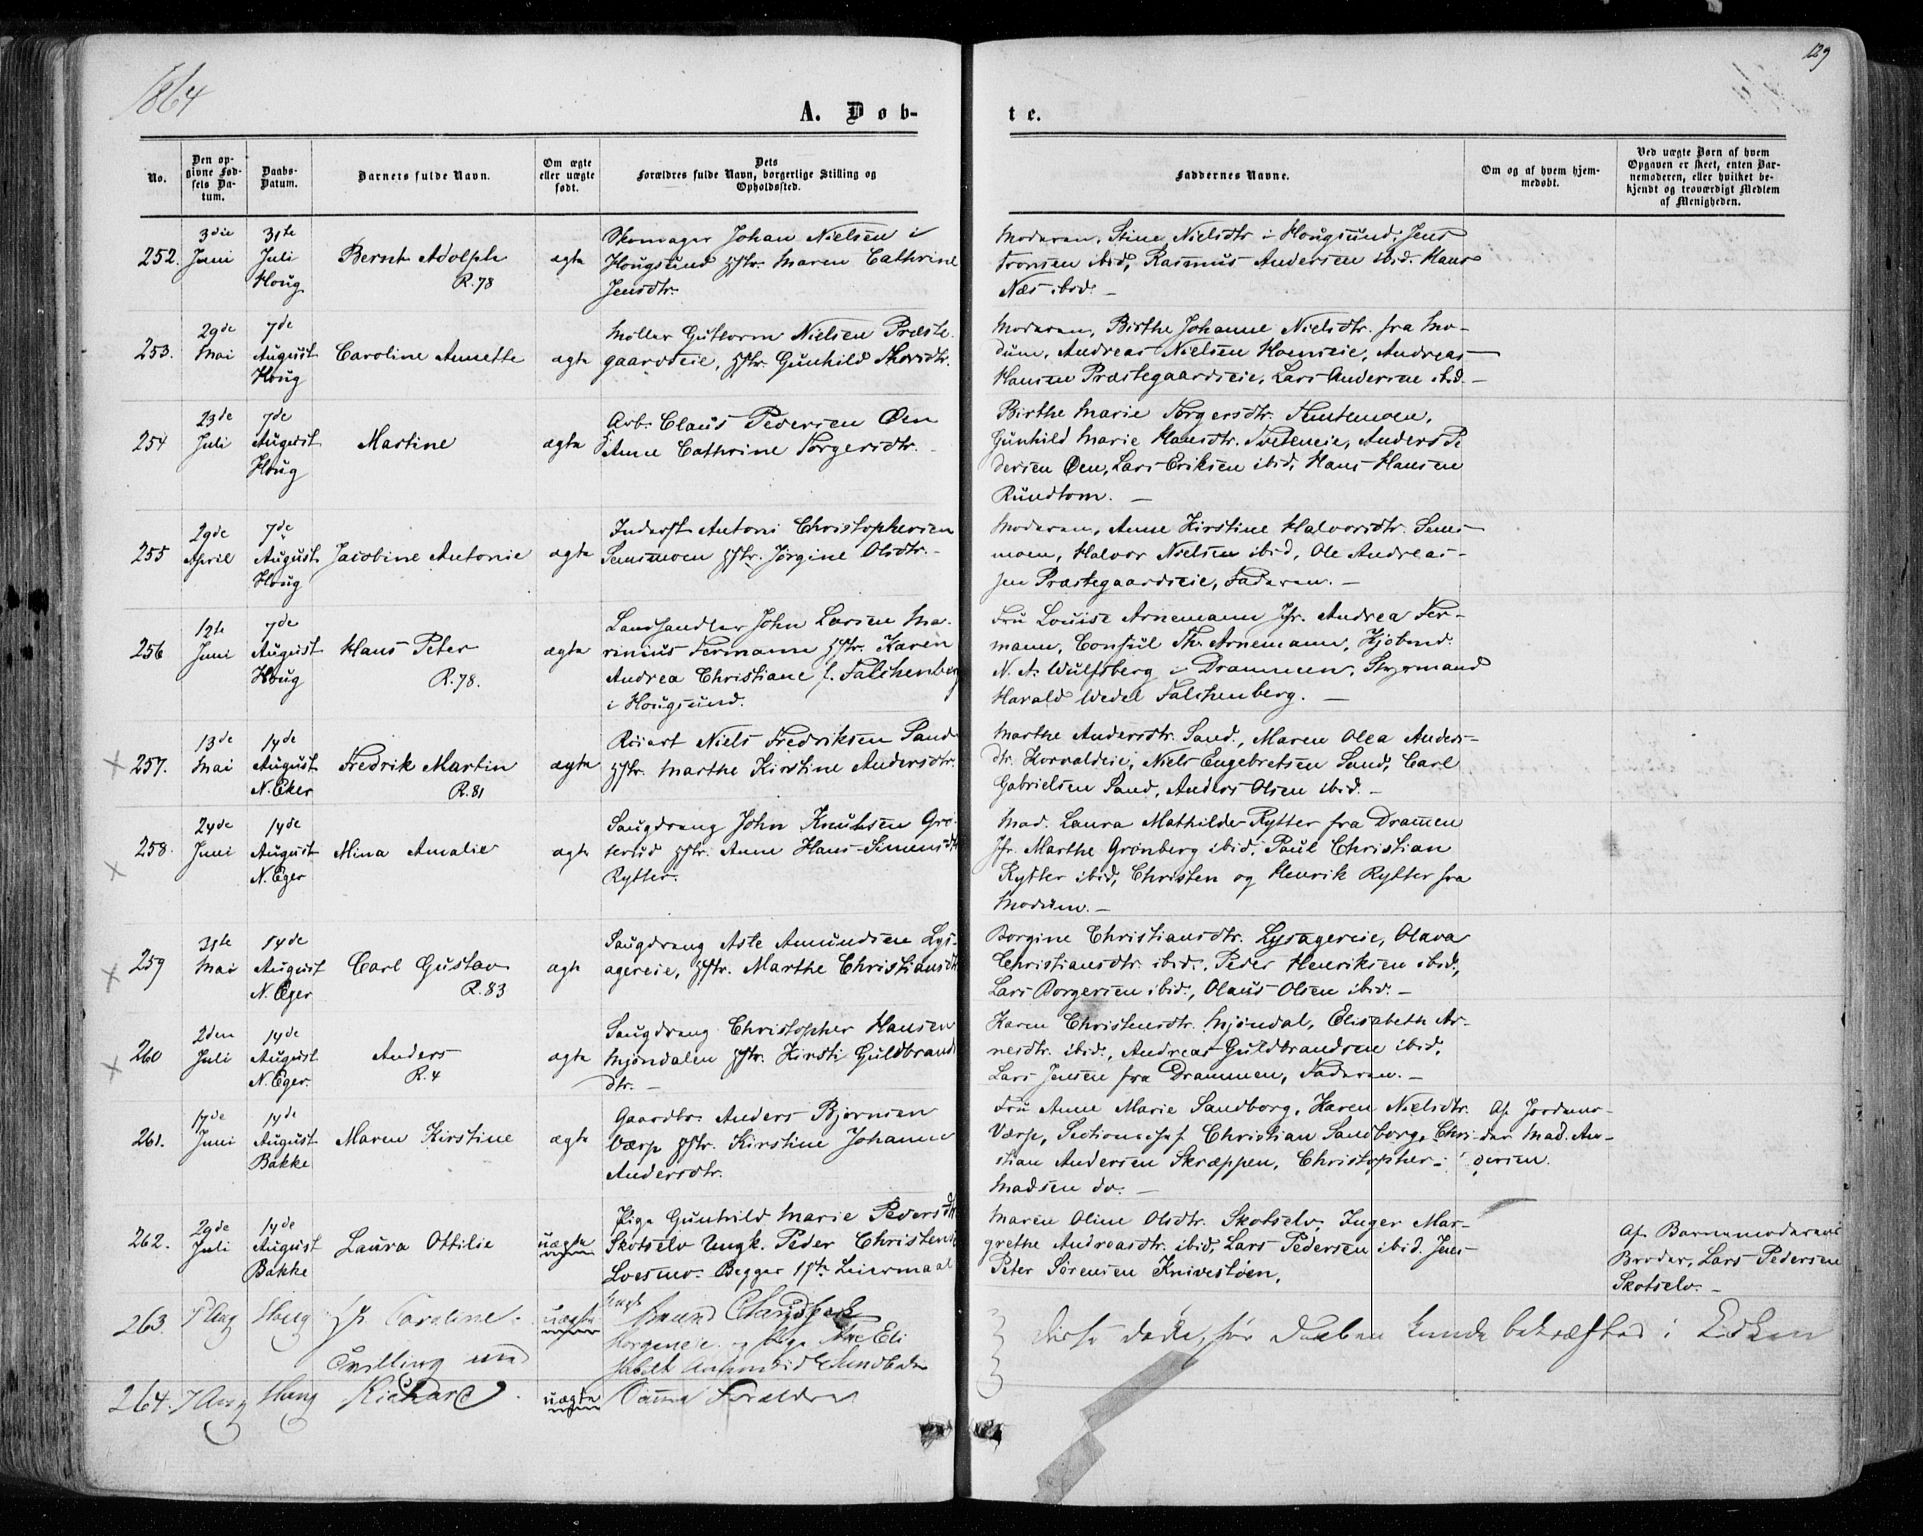 1864
129
A. Døb-
te.
No.
Den op-
givne Fød-
sels Da-
tum.
Daabs-
Datum.
Barnets fulde Navn.
Om ægte
eller uægte
født.
Dets
Forældres fulde Navn, borgerlige Stilling og
Opholdssted.
Faddernes Navne.
Om og af hvem hjem-
medøbt.
Ved uægte Børn af hvem
Opgaven er skeet, enten Bar-
nemoderen, eller hvilket be-
kjendt og troværdigt Medlem
af Menigheden.
252.
3die
Juni
31te
Juli
Houg
Bernt Adolph
R. 78
ægte
Skomager Johan Nielsen i
Hougsund Hstr. Maren Cathrine
Jensdtr.
Moderen, Stine Nielsdtr i Hougsund, Jens
Tronsen ibid, Rasmus Andersen ibid. Hans
Næs ibid. -
253.
29de
Mai
7de
August
Houg
Caroline Annette
ægte
Møller Guttorm Nielsen Præste
gaardseie, Hstr. Gunhild
Moderen, Birthe Johanne Nielsdtr. fra Mo-
dum, Andreas Nielsen Hoenseie, Andreas
Hansen Præstegaardseie, Lars Andersen ibid. -
254
23de
Juli
7de
August
Houg
Martine
ægte
Arb. Claus Pedersen Øen
Anne Cathrine Torgersdtr.
Birthe Marie Torgersdtr.
Gunhild Marie Hansdtr. Anders Pe
dersen Øen, Lars Eriksen ibid, Hans Hansen
Rundtom. -
255
29de
April
7de
August
Houg
Jacobine Antonie
ægte
Inderst Antoni Christophersen
Semsmoen Hstr. Jørgine Olsdtr. -
Moderen, Anne Kirstine Halvorsdtr. Sems-
moen, Halvor Nielsen ibid, Ole Andreas-
sen Præstegaardseie, Faderen. -
256
12te
Juni
7de
August
Houg
Hans Peter
R. 78.
ægte
Landhandler John Larsen Ma-
rinius Fermann Hstr. Karen
Andrea Christiane f. Falchenberg
i Hougsund.
Fru Louise Arnemann Jfr. Andrea Fer-
mann, Consul Th. Arnemann, Kjøbmd.
N. A. Wulfsberg i Drammen, Styrmand
Harald Wedel Falchenberg. -
257.
13de
Mai
14de
August
N. Eker
Fredrik Martin
R. 81
ægte
Røiert Niels Fredriksen Sand
Hstr. Marthe Kirstine Andersdtr.
Marthe Andersdtr. Sand, Maren Olea Anders-
dtr. Niels Engebretsen Sand, Carl
Gabrielsen Sand, Anders Olsen ibid. -
258.
24de
Juni
14de
August
N. Eger
Mina Amalie
ægte
Saugdreng John Knutsen Grø-
Hstr. Anne Hans-Simensdtr
Rytter.
Mad. Laura Mathilde Rytter fra Dramen
Jfr. Marthe Grønberg ibid, Paul Christian
Rytter ibid, Christen og Henrik Rytter fra
Modum. -
259
31te
Mai
14de
August
N. Eger
Carl Gustav
R. 83
ægte
Saugdreng Aste Amundsen Lys-
agereie, Hstr. Marthe Christiansdtr
Borgine Christiansdtr. Lysagereie, Olava
Christiansdtr. ibid. Peder Henriksen ibid.,
Lars Borgersen ibid., Olaus Olsen ibid. -
260
2den
Juli
14de
August
N. Eger.
Anders
R. 4
ægte
Saugdreng Christopher Hansen
Mjøndalen Hstr. Kirsti Guldbrands
dtr. -
Karen Christensdtr. Mjøndal, Elisabeth Ar-
nesdtr. ibid., Andreas Guldbrandsen ibid,
Lars Jensen fra Drammen, Faderen. -
261.
17de
Juni
14de
August
Bakke
Maren Kirstine
ægte
Gaardbr. Anders Bjørnsen
Værp Hstr. Kirstine Johanne
Andersdtr.
Fru Anne Marie Sandborg, Karen Nielsdtr.
Værp, Christian Sandborg, Chri-
stian Andersen Skræppen, Christopher
Madsen do. -
Af Jordemo-
der Mad. An-
dersen.
262.
29de
Juli
14de
August
Bakke
Laura Ottilie
uægte
Pige Gunhild Marie Pedersdtr
Skotselv Ungk. Peder Christens
Loesmo. Begges 1ste Leiermaal
Maren Oline Olsdtr. Skotselv, Inger Mar-
grethe Andreasdtr. ibid, Lars Pedersen ibid. Jens
Peter Sørensen Knivestøen.
Af Barnemoderens
Broder, Lars Pedersen
Skotselv. -
263.
7 Aug
Houg
Caroline
Tvilling med
uægte
Ungk.
Amund
og Pige Eli
264.
7 Aug
Houg
Richard
uægte
Samme Forældre
disse døde, før Daaben kunde bekræftes i Kirken